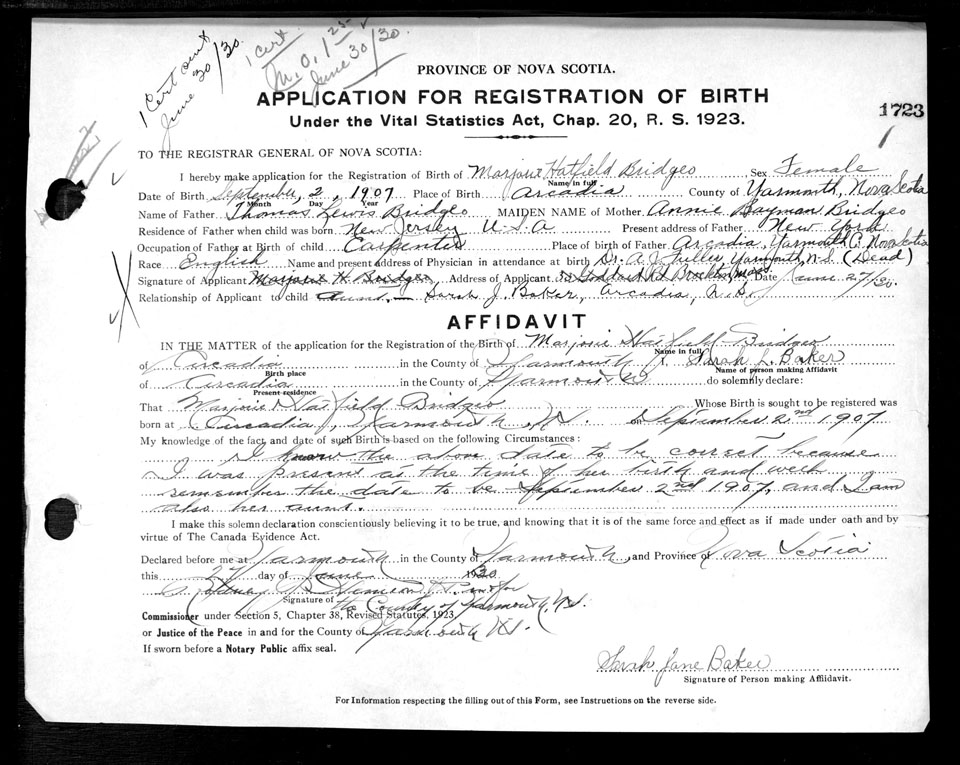 1 Cert out
June 30/30.
1 Cert
M.O. 1 25
June 30/30.
PROVINCE OF NOVA SCOTIA.
APPLICATION FOR REGISTRATION OF BIRTH
1723
Under the Vital Statistics Act, Chap. 20, R. S. 1923.
1
TO THE REGISTRAR GENERAL OF NOVA SCOTIA:
I hereby make application for the Registration of Birth of Marjorie Hatfield Bridgeo Sex Female
Name in full
Date of Birth September, 2, 1907 Place of Birth Arcadia County of Yarmouth, Nova Scotia
Month Day Year
Name of Father Thomas Lewis Bridgeo MAIDEN NAME of Mother Annie Bayman Bridgeo
Residence of Father when child was born New Jersey U.S.A Present address of Father New York
Occupation of Father at Birth of child Carpenter Place of birth of Father Arcadia, Yarmouth C. Nova Scotia
Race English Name and present address of Physician in attendance at birth Dr. A J Fuller Yarmouth, N.S. (Dead)
Signature of Applicant Marjorie H. Bridgeo Address of Applicant Goddard Rd Brockton, Mass Date June 27/30.
Relationship of Applicant to child Aunt. Sarah J. Baker, Arcadia, N.S.
AFFIDAVIT
IN THE MATTER of the application for the Registration of the Birth of Marjorie Hatfield Bridgeo
Name in full
of Arcadia in the County of Yarmouth I, Sarah L. Baker
Birth place Name of person making Affidavit
of Arcadia in the County of Yarmouth do solemnly declare:
Present residence
That Marjorie Hatfield Bridgeo Whose Birth is sought to be registered was
born at Arcadia, Yarmouth, N. on September 2nd 1907
My knowledge of the fact, and date of such Birth is based on the following Circumstances:
I know the above date to be correct because
I was present at the time of her birth and well
remember the date to be September 2nd 1907, and I am
also her aunt.
I make this solemn declaration conscientiously believing it to be true, and knowing that it is of the same force and effect as if made under oath and by
virtue of The Canada Evidence Act.
Declared before me at Yarmouth in the County of Yarmouth, and Province of Nova Scotia
this 27 day of June 1930
Signature of
the County of Yarmouth, N.S.
Commissioner under Section 5, Chapter 38, Revised Statutes, 1923
or Justice of the Peace in and for the County of Yarmouth N.S.
If sworn before a Notary Public affix seal.
Sarah Jane Baker
Signature of Person making Affidavit.
For Information respecting the filling out of this Form, see Instructions on the reverse side.